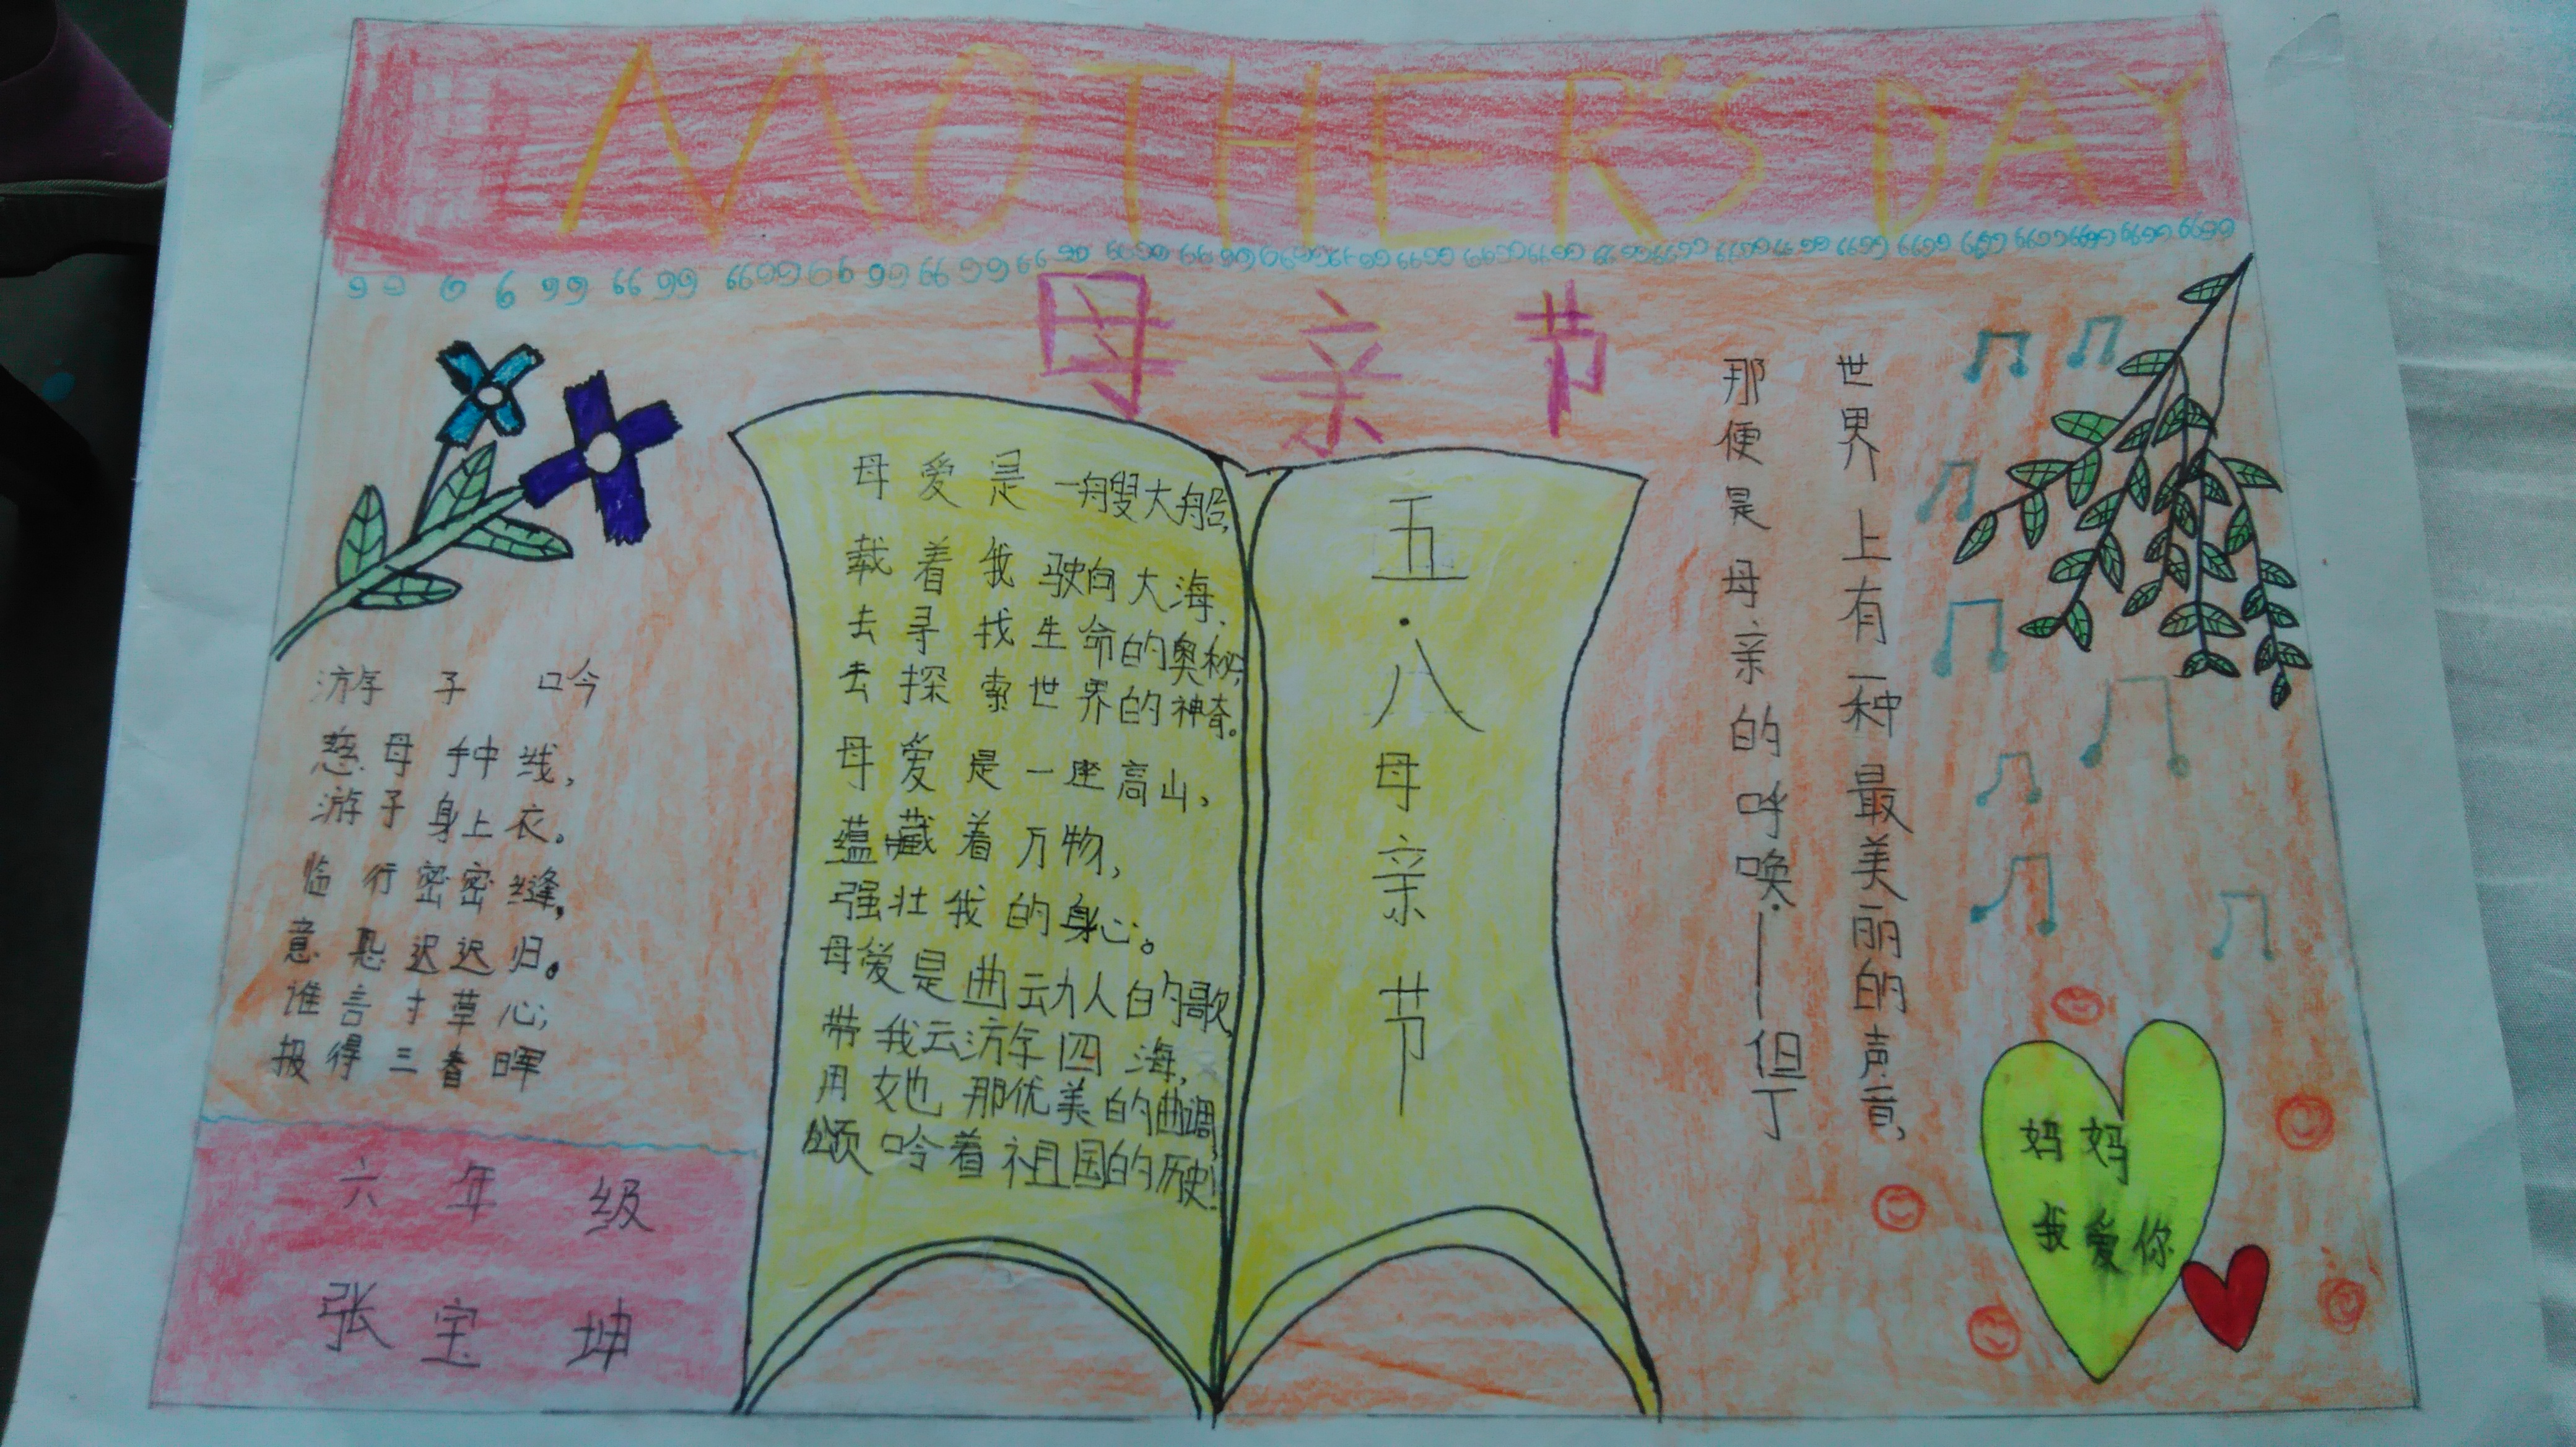 MOTHER'S DAY
母亲节
游子吟
慈母手中线,
游子身上衣。
临行密密缝,
意恐迟迟归。
谁言寸草心,
报得三春晖
六年级
张宝坤
母爱是一艘大船,
载着我驶向大海,
去寻找生命的奥秘,
去探索世界的神奇。
母爱是一座高山,
蕴藏着万物,
强壮我的身心。
母爱是曲动人的歌,
带我云游四海,
用她那优美的曲调,
颂吟着祖国的历史!
五·八
母亲节
世界上有一种最美丽的声音,
那便是母亲的呼唤.——但丁
妈妈
我爱你